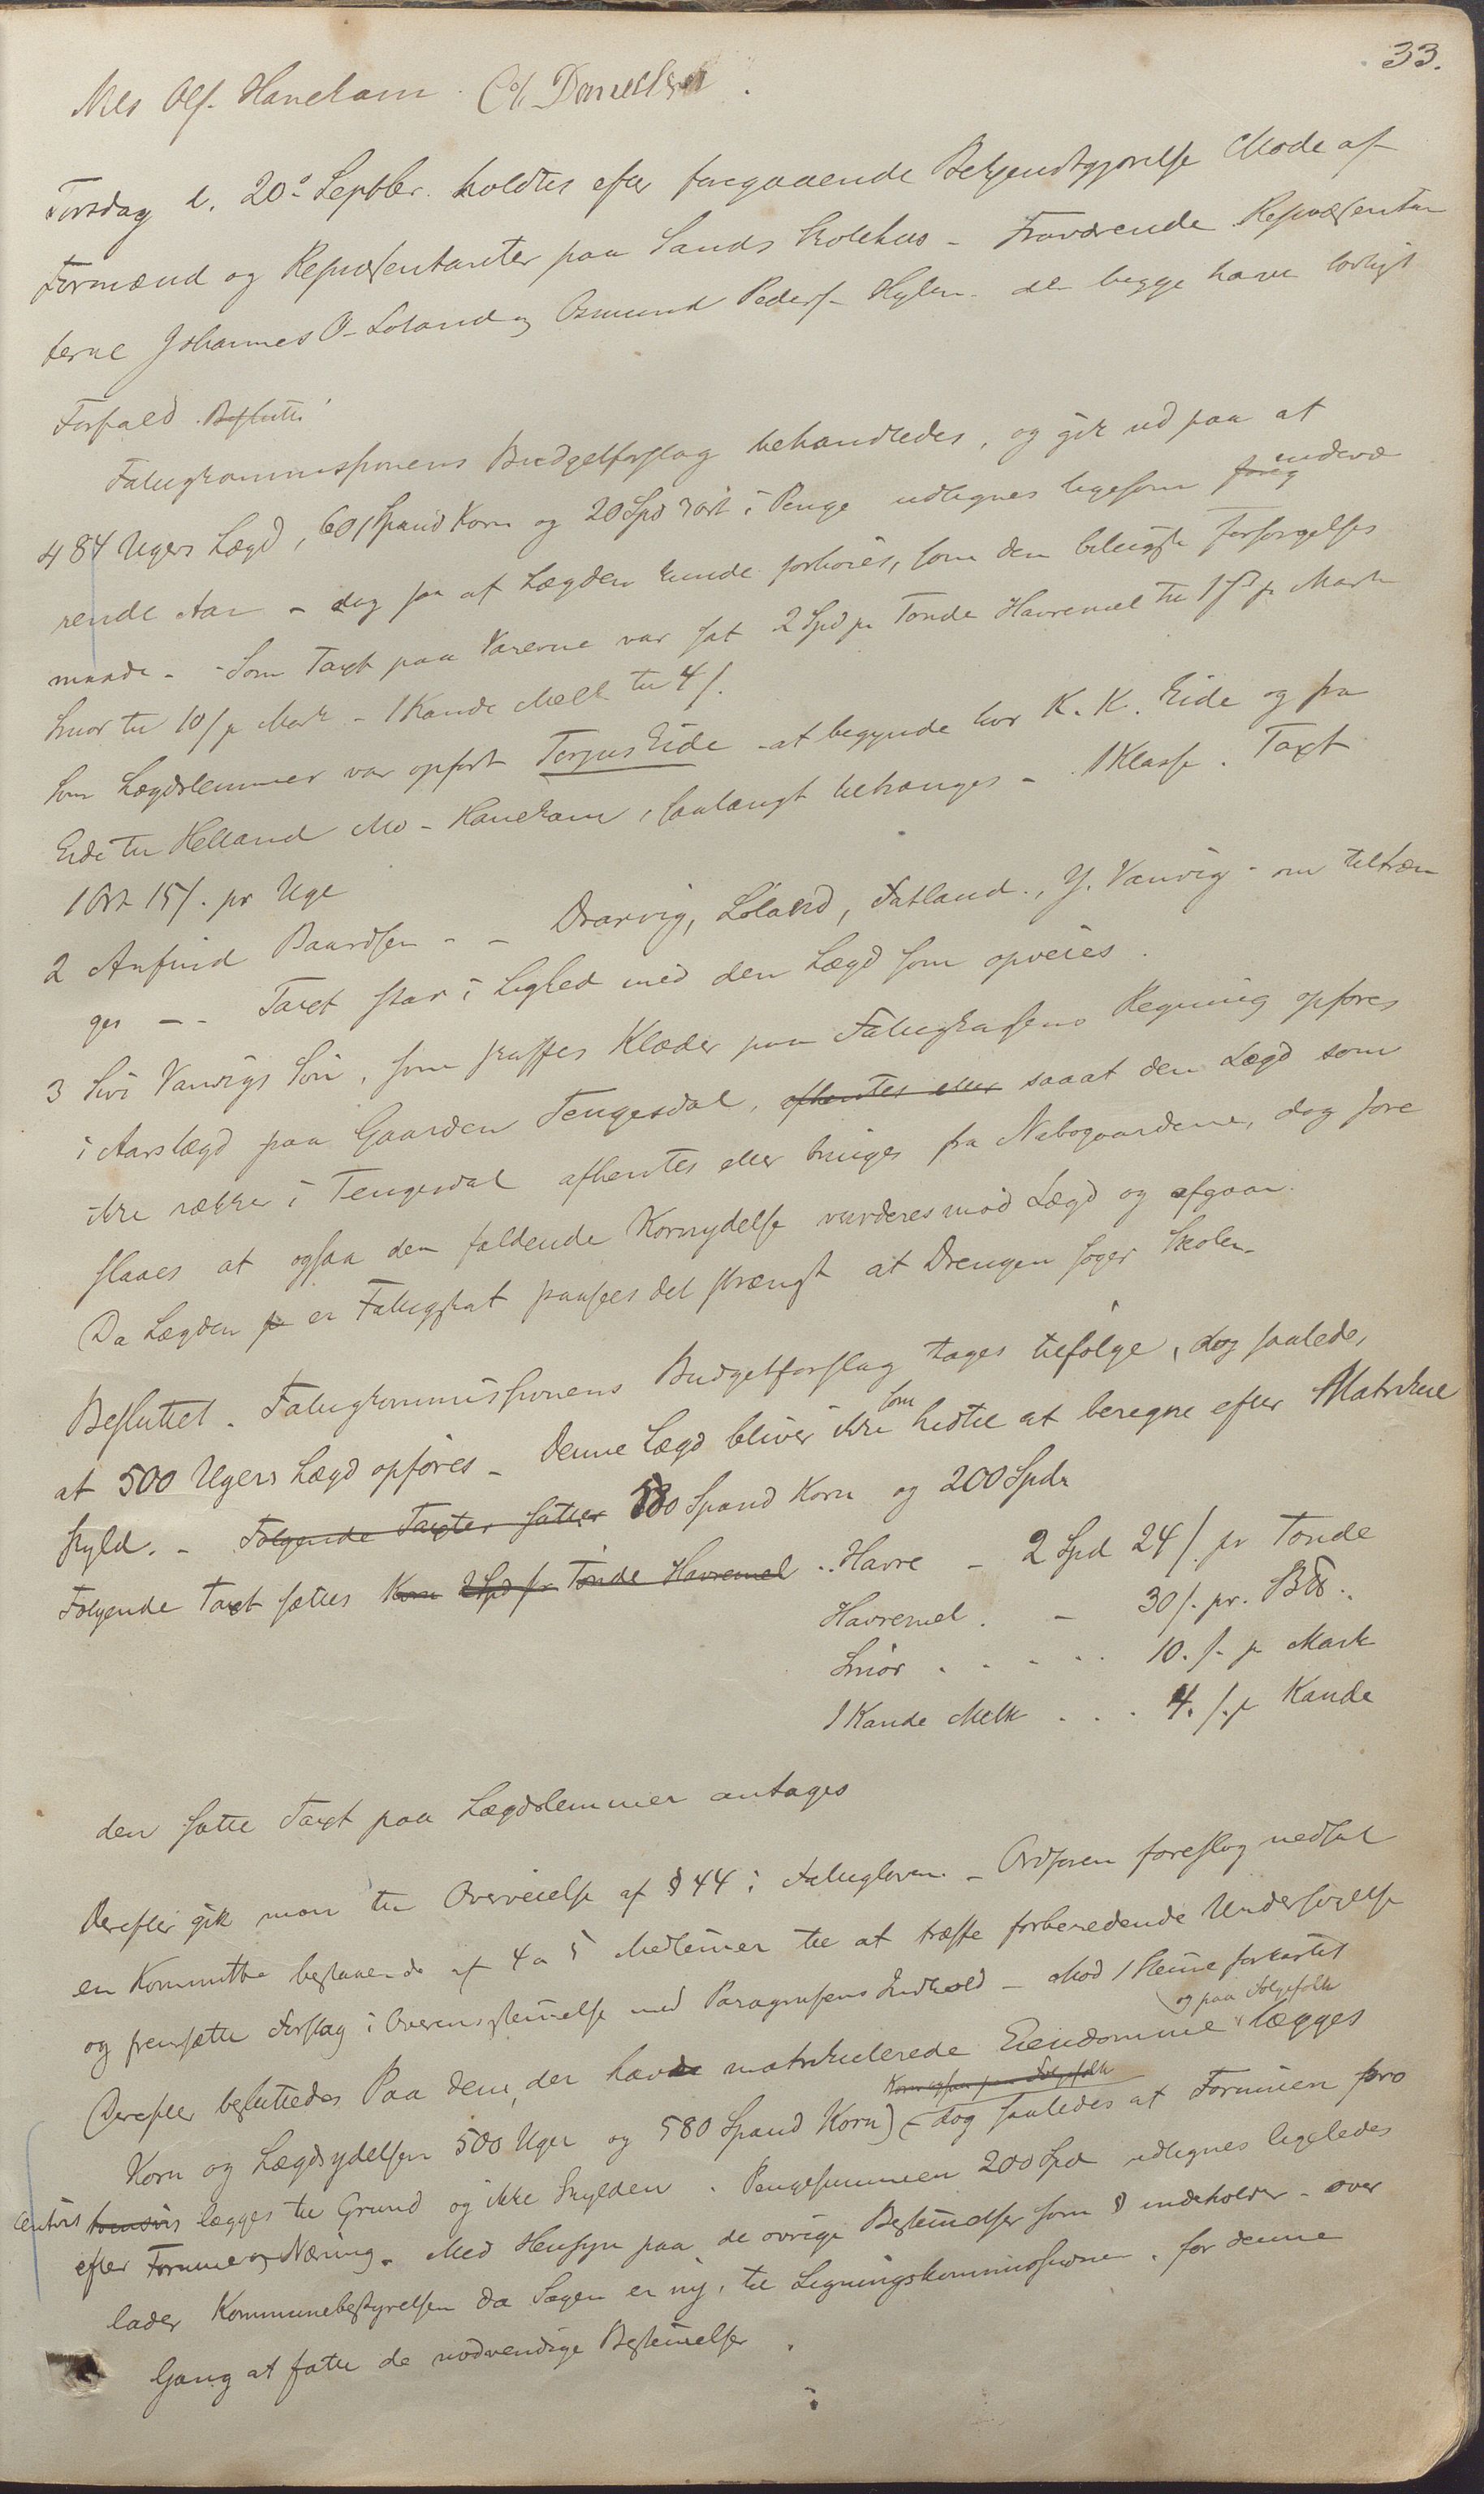 33.
Nils Ols. Hanekam. Ch. Danielsen.
Torsdag d. 20de Septbr. holdtes efter foregaaende Bekjendtgjørelse Møde af
Formænd og Repræsentanter paa Sands Skolehus - Fraværende Repræsentan
terne Johannes O. Løland og Osmund Peders. Hylen - de begge have lovligt
Forfald. Besluttet
Fatigkommissionens Budgetforslag behandledes, og gik ud paa at
484 Ugers Lægd, 601 Spand Korn og 20 Spd i Penge udlignes ligesom foreg indevæ
rende Aar - dog at Lægden kunde forhøies, som den beleiligste Forsørgelses
maade. - Som Taxt paa Varerne var sat 2 Spd pr Tønde Havremel til 1 pr Mark
Smør til 10 s pr Mark - 1 Kande Melk til 4 s.
Som Lægdslemmer var opført Torgus Eide - at begynde hos K. K. Eide og fra
Eide til Helland Mo - Hanekam, saalangt behøves - 1 Klasse. Taxt
1 Ort 15 s. pr Uge
2 Anfind Baardsen - - Drarvig, Løland, Fatland., Y. Vanvig - om tiltræn
ges - - Taxt staar i Lighed med den Lægd som opveies.
3 Siri Vanvigs Søn, som skaffes Klæder paa Fatigkassens Regning opføres
i Aarslægd paa Gaarden Tengesdal, afhentes eller saaat den Lægd som
ikke rækker i Tengesdal afhentes eller bringes fra Nabogaardene, dog fore
slaaes at ogsaa den faldende Kornydelse vurderes mod Lægd og afgaar.
Da Lægden er Fatigskat paasees det strængt at Drengen søger Skolen.
Besluttet. Fatigkommissionens Budgetforslag tages tilfølge, dog saaledes
at 500 Ugers Lægd opføres - Denne Lægd bliver ikke som hidtil at beregne efter Matrikul
skyld. - Følgende Taxter sættes 580 Spand Korn og 200 Spdr
Følgende Taxt sættes Korn 2 Spd pr Tønde Havremel .. Havre - 2 Spd 24 s. pr Tønde
Havremel. - 30 s. pr. B℔.
Smør . . . . . 10. s. pr Mark
1 Kande Melk . . . 4. s. pr Kande
den satte Taxt paa Lægdslemmer antages
Derefter gik man til Overveielse af § 44 i Fatigloven. - Ordføren foreslog nedsat
en Kommitte bestaaende af 4 a 5 Medlemer til at træffe forberedende Undersøgelse
og fremsætte Forslag i Overensstemmelse med Paragrafens Indhold - Mod 1 Stemme forkastet
Derefter besluttedes Paa dem, der havde matrikulerede Eiendomme og paa Følgefolk lægges
Korn og Lægdsydelsen 500 Uger og 580 Spand Korn) - dog saaledes at Formuen pro
centvis lægges til Grund og ikke Skylden. Pengesummen 200 Spd udlignes ligeledes
efter Formue og Næring. Med Hensyn paa de øvrige Bestemelser som § indeholder - over
lader Kommunebestyrelsen da Sagen er ny, til Ligningskommissionen, for denne
Gang at fatte de nødvendige Bestemelser.